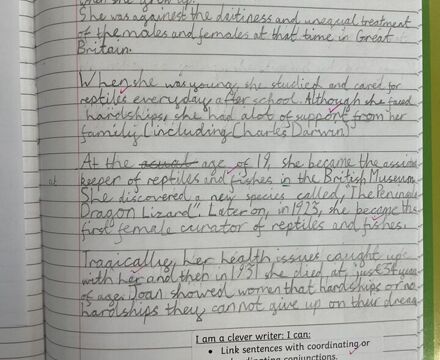 when she grew up.
She was against the daitiness and unequal treatment
of the males and females at that time in Great
Britain.
When she was young, she studied and cared for
reptiles everyday after school. Although she faced
hardships, she had alot of support from her
family (including Charles Darwin)
At the age of 19, she became the assis
keeper of reptiles and fishes in the British Museum
She discovered a new species called, "The Peningu
Dragon Lizard". Later on, in 1923, she became the
first female curator of reptiles and fishes.
Tragically, her health issues caught up
with her and then in 1931 she died at just 34 year
of age. Joan showed women that hardships or no
hardships they cannot give up on their dream
I am a clever writer: I can:
• Link sentences with coordinating or
subordinating conjunctions.